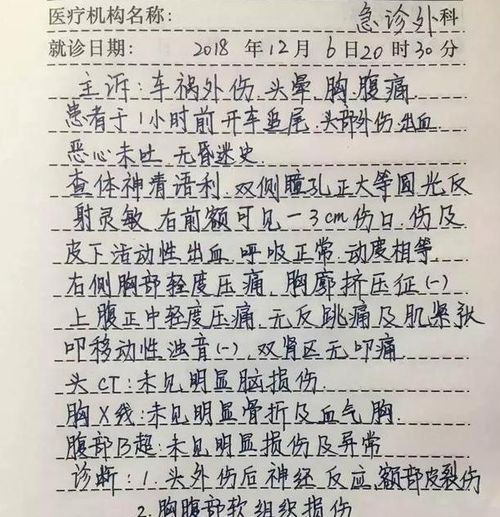 医疗机构名称: 急诊外科
就诊日期: 2018 年 12 月 6 日 20 时 30 分
主诉:车祸外伤.头晕.胸.腹痛
患者于1小时前开车追尾.头部外伤.出血
恶心未吐.无昏迷史.
查体神清语利.双侧瞳孔正大等圆光反
射灵敏.右前额可见一3cm伤口.伤及
皮下活动性出血.呼吸正常.动度相等.
右侧胸部轻度压痛.胸廓挤压征(-)
上腹正中轻度压痛.无反跳痛及肌紧张
叩移动性浊音(-).双肾区无叩痛
头CT:未见明显脑损伤.
胸X线:未见明显骨折及血气胸
腹部B超:未见明显损伤及异常
诊断:1.头外伤后神经反应,额部皮裂伤
2.胸腹部软组织损伤